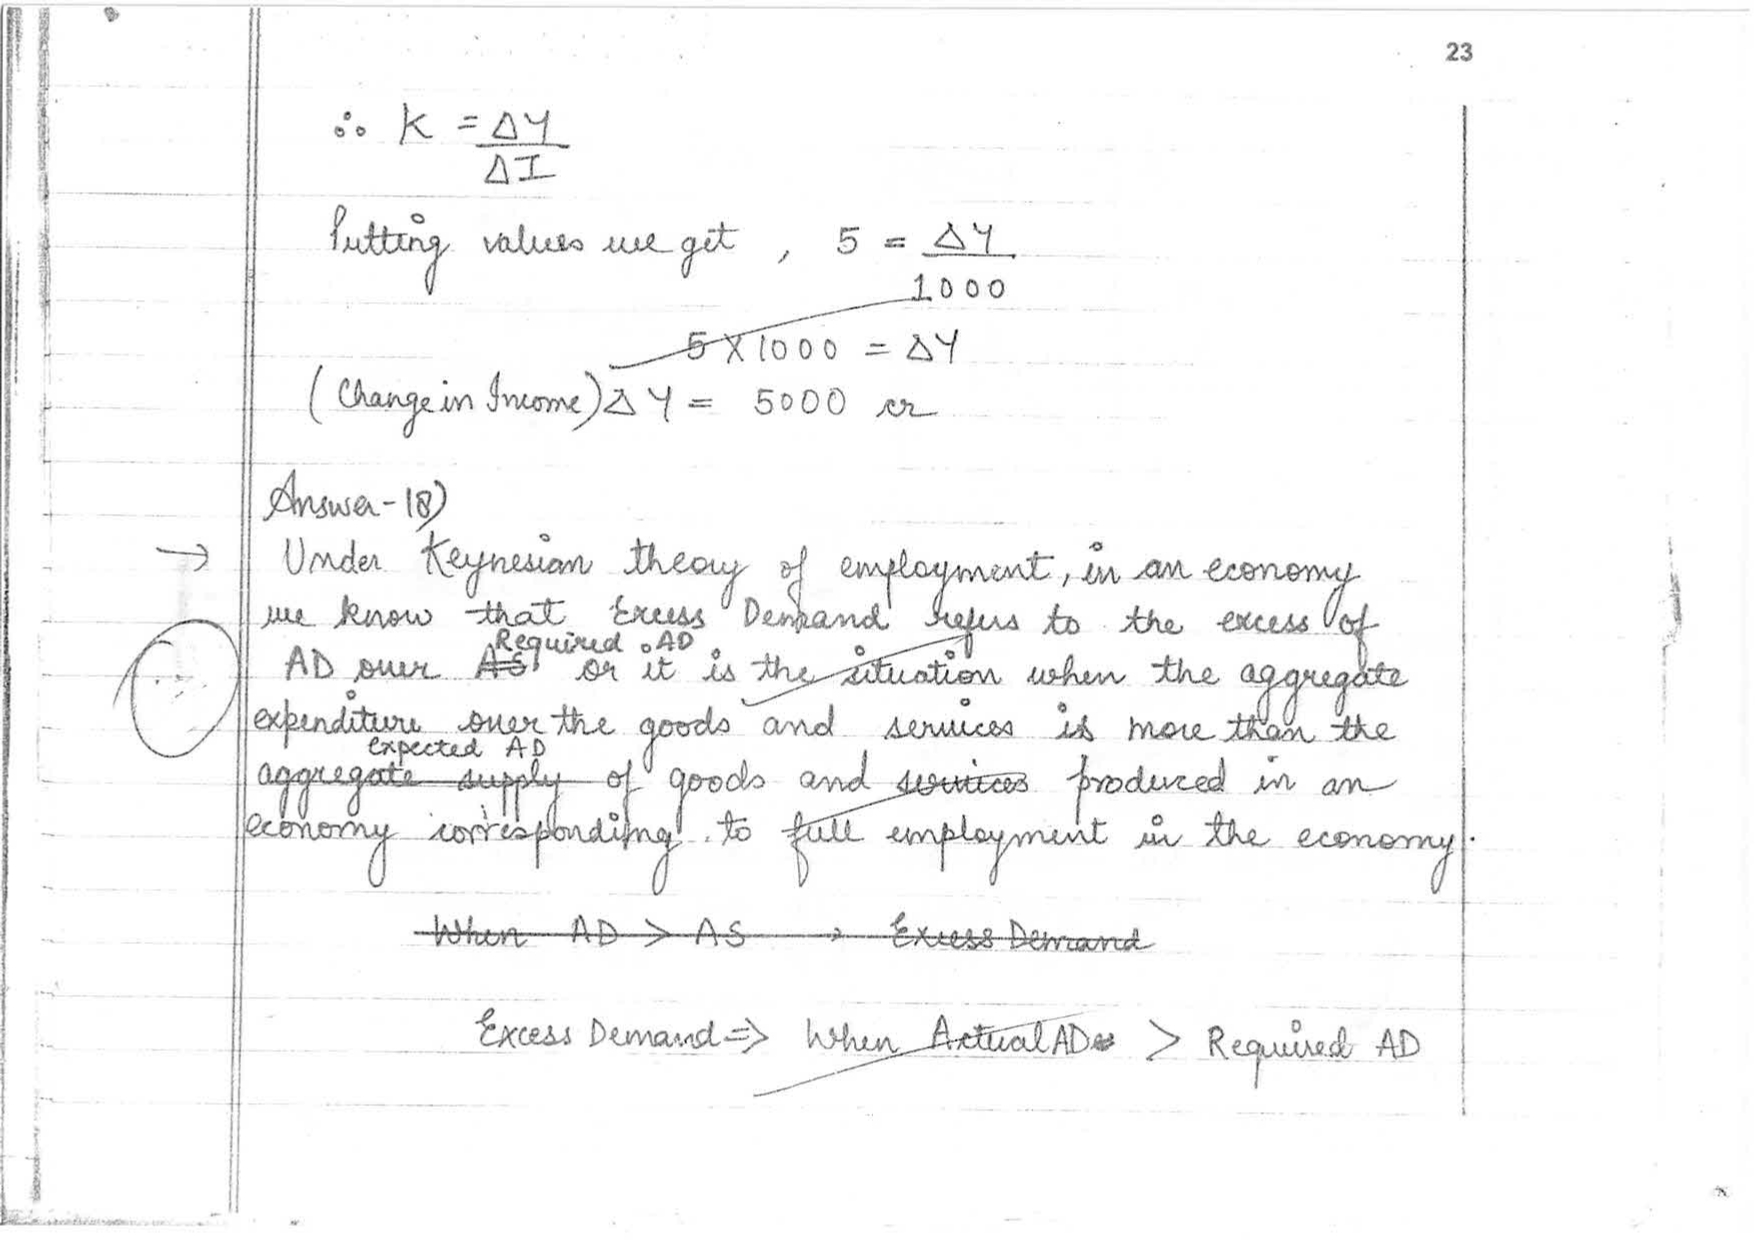 23
∴ K = ΔY
ΔI
Putting values we get, 5 = ΔY
1000
5 X 1000 = ΔY
(Change in Income) ΔY = 5000 cr
Answer-18)
→ Under Keynesian theory of employment, in an economy
we know that Excess Demand refers to the excess of
Required AD
AD over AS or it is the situation when the aggregate
expenditure over the goods and services is more than the
expected AD
aggregate supply of goods and services produced in an
economy corresponding to full employment in the economy.
When AD > AS → Excess Demand
Excess Demand ⇒ When Actual AD > Required AD